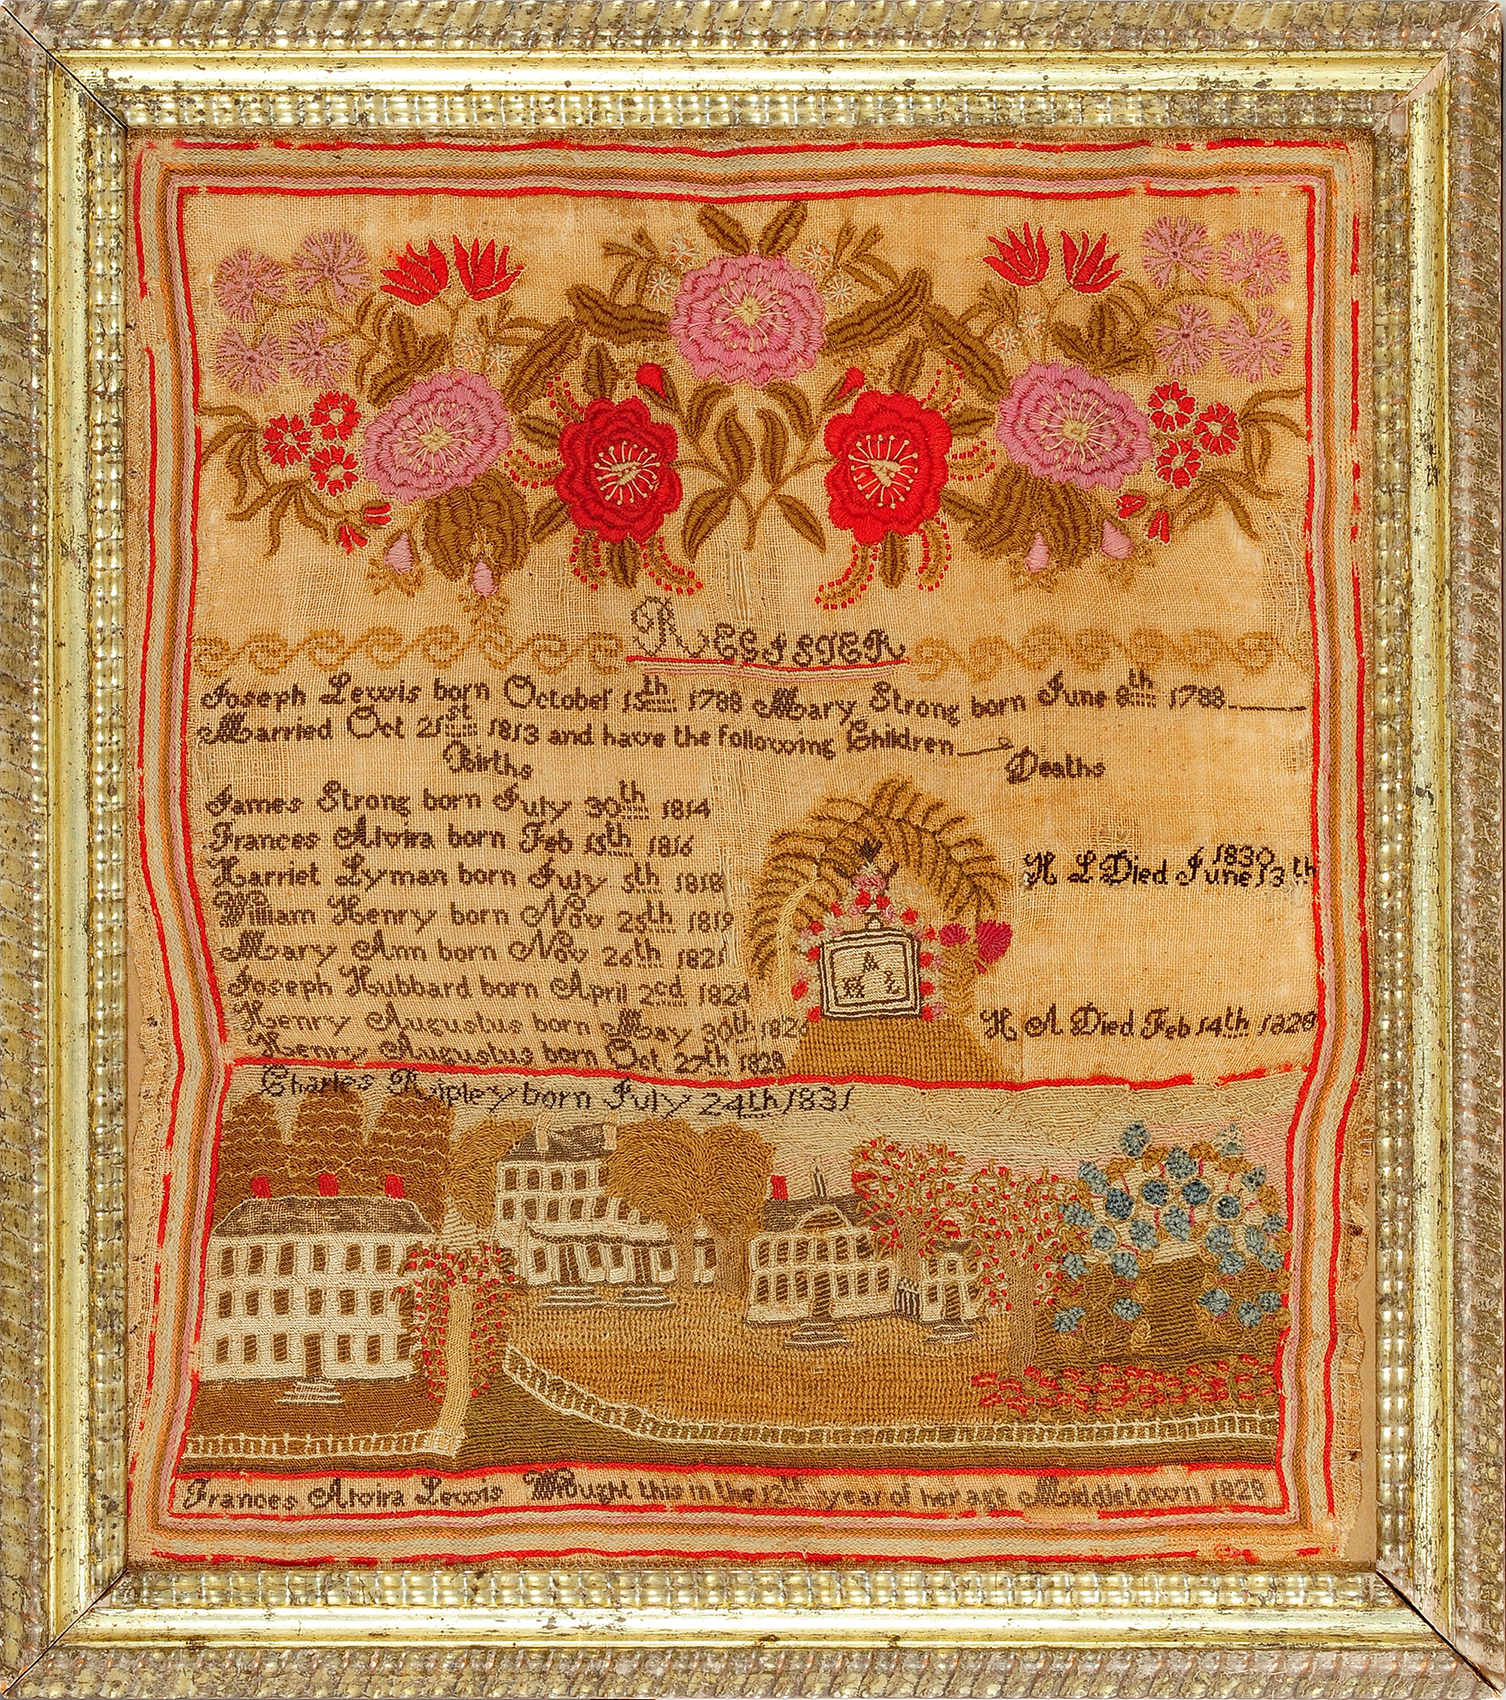 REGISTER
Joseph Lewis born October 15th 1788 Mary Strong born June 8th 1788
Married Oct 21st 1813 and have the following Children
Births
Deaths
James Strong born July 30th 1814
Frances Alvira born Feb 15th 1816
Harriet Lyman born July 5th 1818
William Henry born Nov 25th 1819
Mary Ann born Nov 26th 1821
Joseph Hubbard born April 2cd 1824
Henry Augustus born May 30th 1826
Henry Augustus born Oct 27th 1828
Charles Ruipley born July 24th 1831
1830
H L Died June 13th
A
H L
H A Died Feb 14th 1828
Frances Alvira Lewis Wrought this in the 12th year of her age Middletown 1828